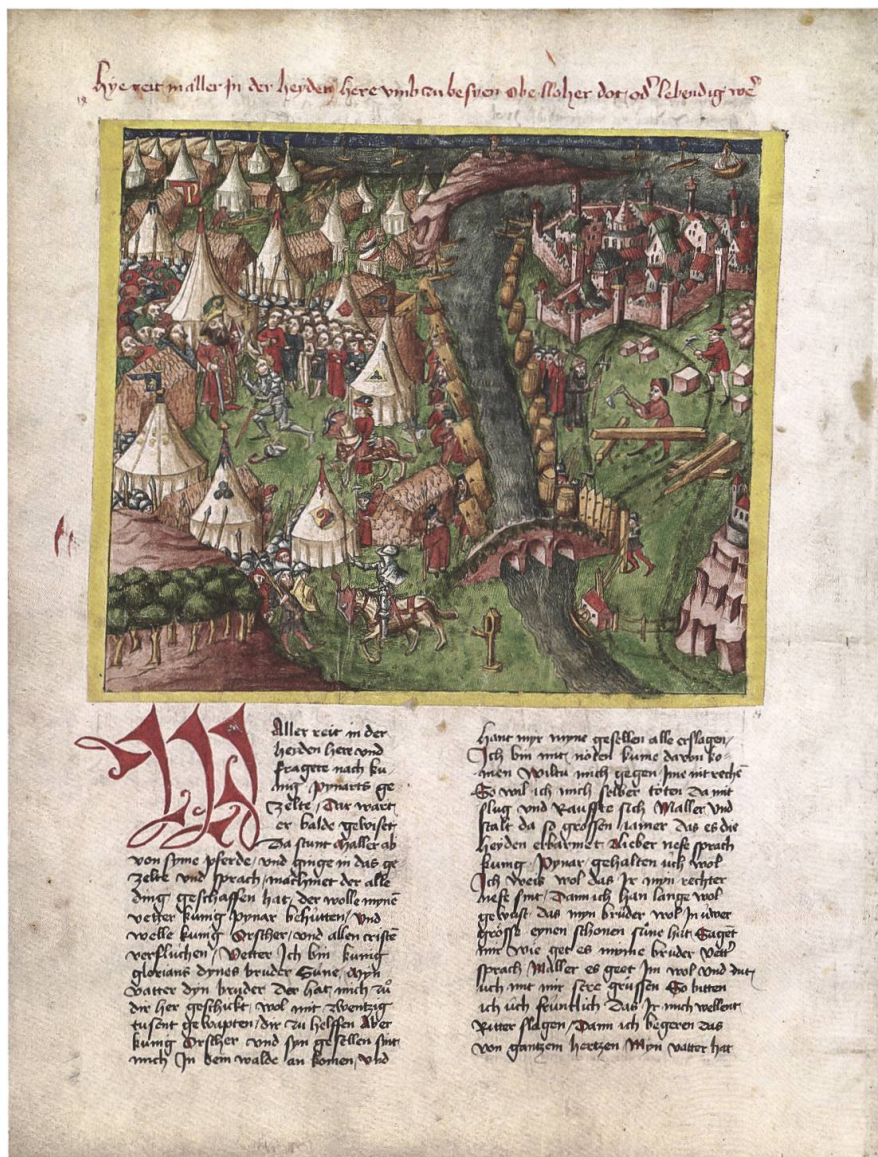 Hye reit maller Jn der heyden here vmb zu bespen obe lloher dot, od' lebendig we'
MAller reit in der
heiden here vnd
fragete nach ku,
nig Pynarts ge
zelte, Dar wart
er balde gewiset
Da stunt Maller ab
von syme pferde, vnd ginge in das ge
zelte vnd sprach, machmet der alle
ding geschaffen hat, der wolle mynē
vetter kunig pynar behutten, vnd
welle kunig Orscher, vnd allen cristē
verfluchen, Vetter Ich bin kunig
glorians dynes bruder Sune, Myn
vatter dyn bruder Der hat mich zů
dir her geschickt, wol mit zwentzig
tusent gewapten, dir zu helffen Aber
kunig Orscher vnd syn gesellen sint
mich Jn dem walde an komen, vnd
hant myr myne gesellen alle erslagen,
Ich bin mit nöten kume darvon ko,
men Wiltu mich gegen Jme nit rechē
So wil ich mich selber töten Da mit
slug vnd Rauffte sich Maller vnd
stalt da so grossen Jamer das es die
heyden erbarmet Lieber nefe sprach
kunig Pynar gehalten uch wol
Ich weis wol das Jr myn rechter
nefe sint, Dann ich han lange wol
gewust das myn bruder wol Jn uwer
grösse eynen schonen sune hat Saget
mir wie get es myme bruder Vett'
sprach Maller es geet Jm wol vnd dut,
uch mit mir sere grüssen So bitten
ich üch früntlich Das Jr mich wellent
Ritter slagen, Dann ich begeren das
von gantzem hertzen Myn vatter hat